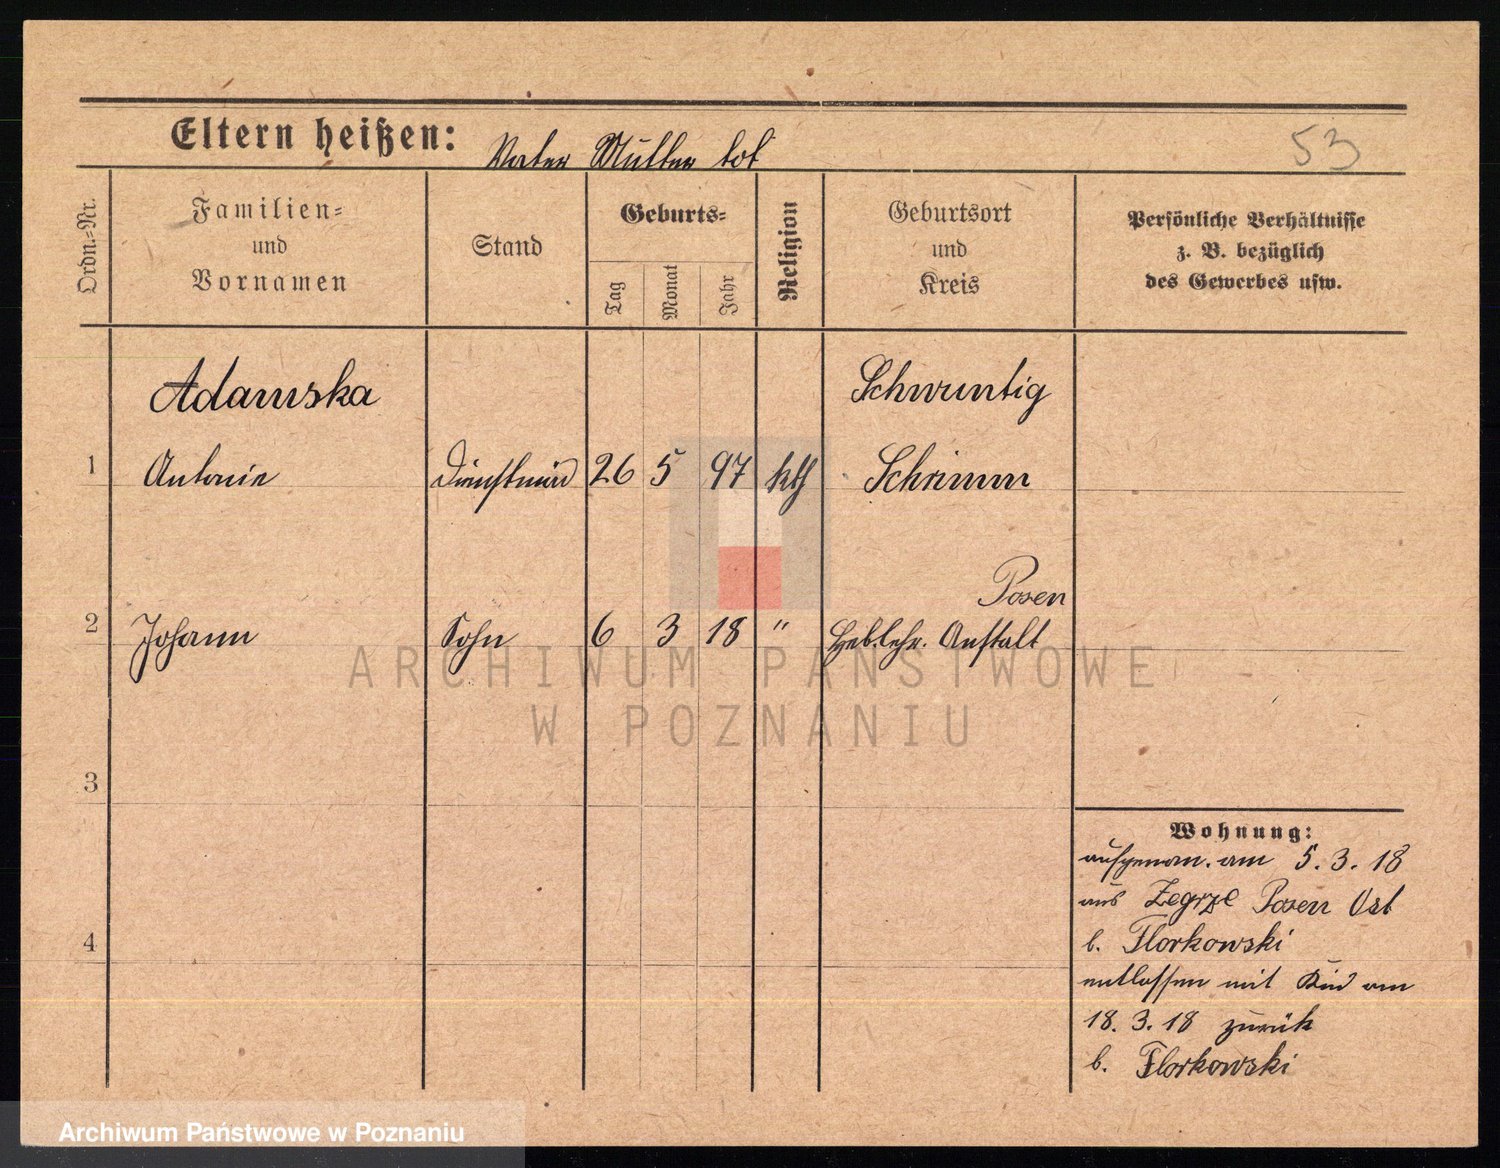 Eltern heißen: Vater Mutter tot
53
Ordn.-Nr.
Familien-
und
Vornamen
Stand
Geburts-
Tag
Monat
Jahr
Religion
Geburtsort
und
Kreis
Persönliche Verhältnisse
z. B. bezüglich
des Gewerbes usw.
Adamska
Schwuntig
1 Antonie Dienstmäd 26 5 97 kth Schrimm
Posen
2 Johann Sohn 6 3 18 " Heb.lehr. Anstalt
3
4
Wohnung:
aufgenom. am 5. 3. 18
aus Zegrze Posen Ost
b. Florkowski
entlassen mit Kind am
18. 3. 18 zurück
b. Florkowski
ARCHIWUM PAŃSTWOWE
W POZNANIU
Archiwum Państwowe w Poznaniu